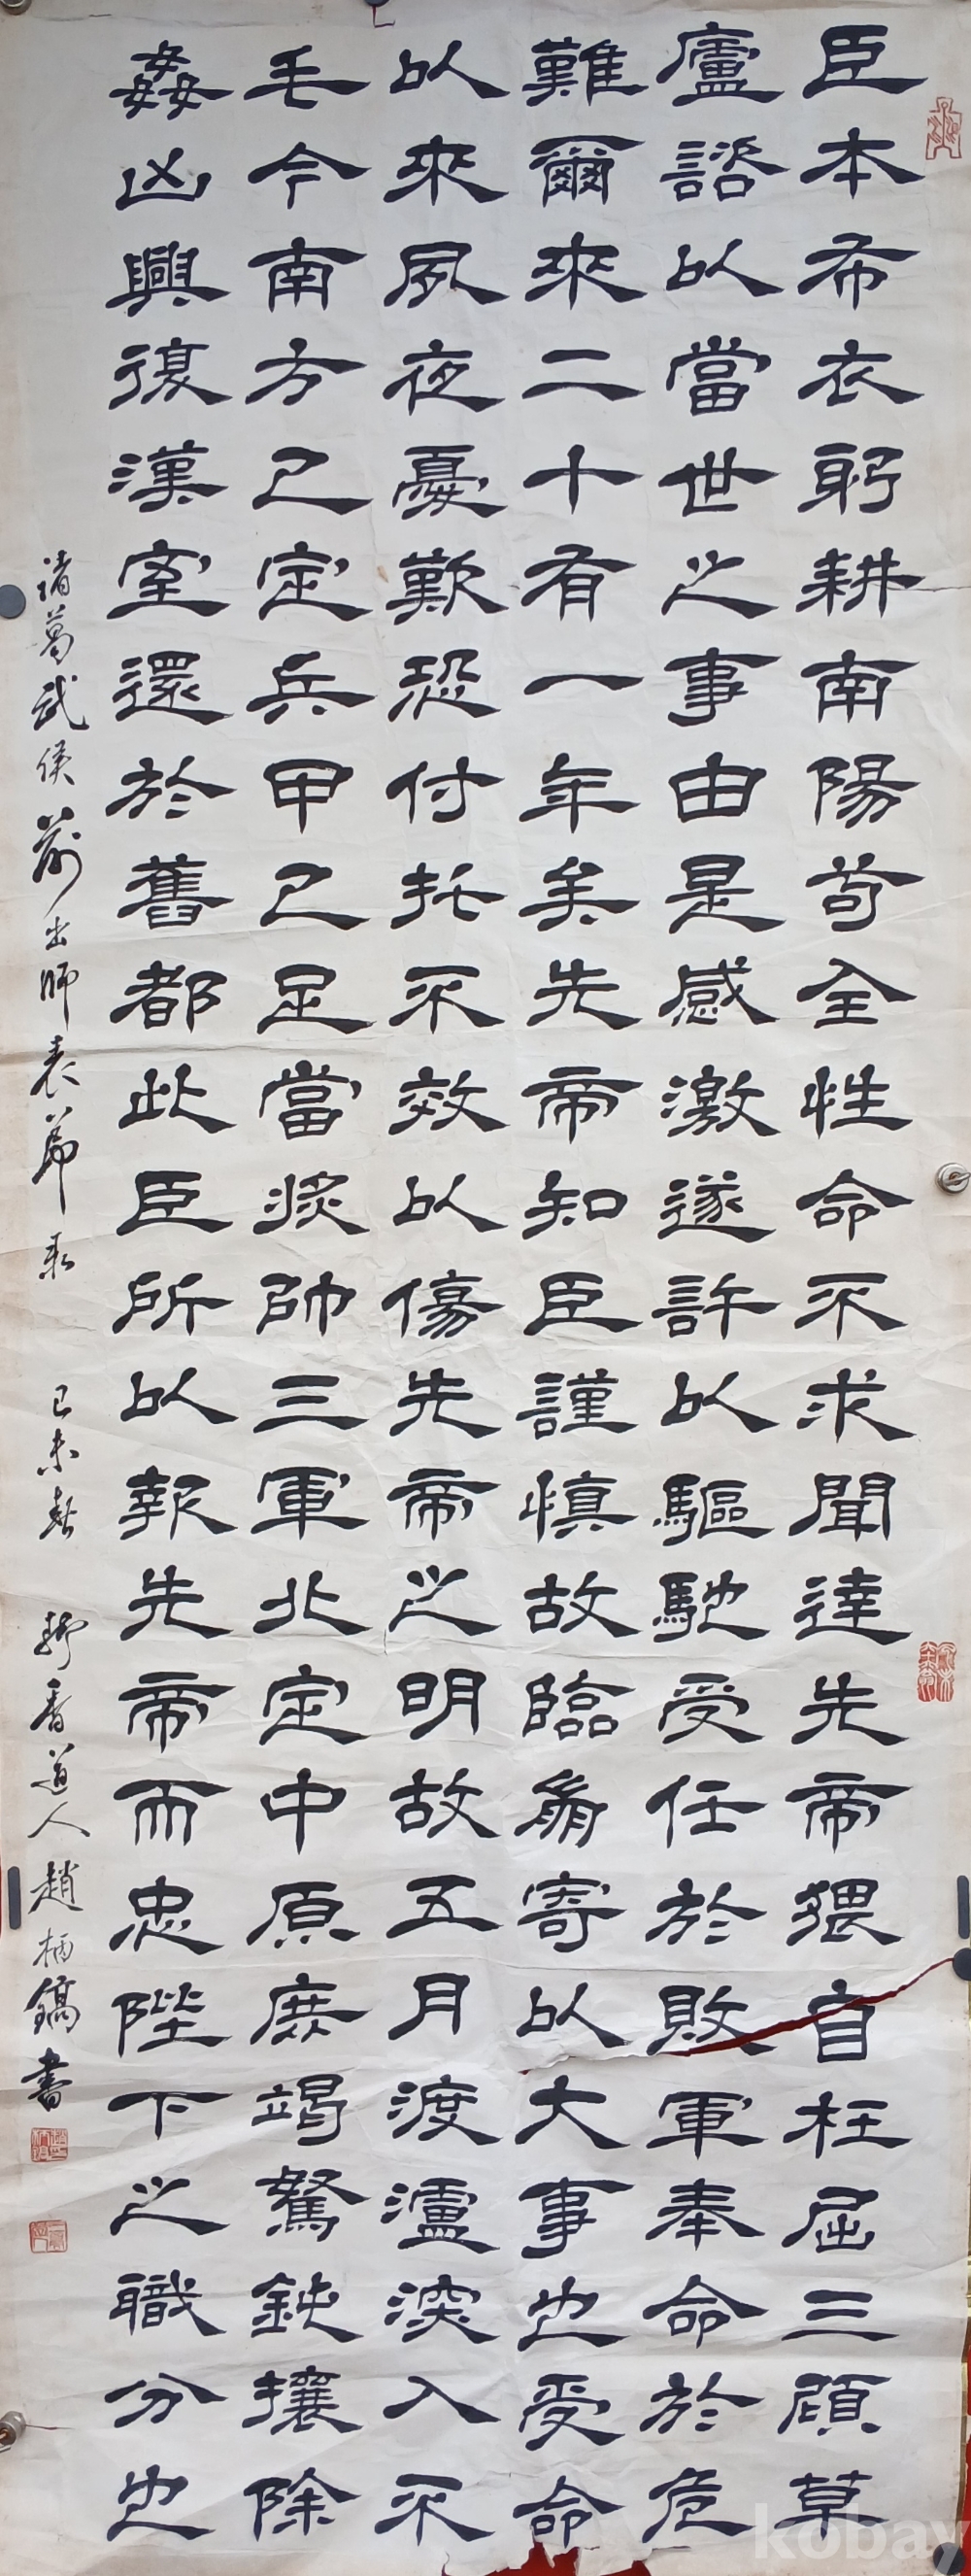 臣本布衣躬耕南陽苟全性命不求聞達先帝猥自枉屈三顧草
廬諮以當世之事由是感激遂許以驅馳受任於敗軍奉命於危
難爾來二十有一年矣先帝知臣謹慎故臨崩寄以大事也受命
以來夙夜憂歎恐付托不效以傷先帝之明故五月渡瀘深入不
毛今南方已定兵甲已足當獎帥三軍北定中原庶竭駑鈍攘除
姦凶興復漢室還於舊都此臣所以報先帝而忠陛下之職分也
諸葛武侯前出師表節录 己未春 香道人趙柄鎬書
kobay